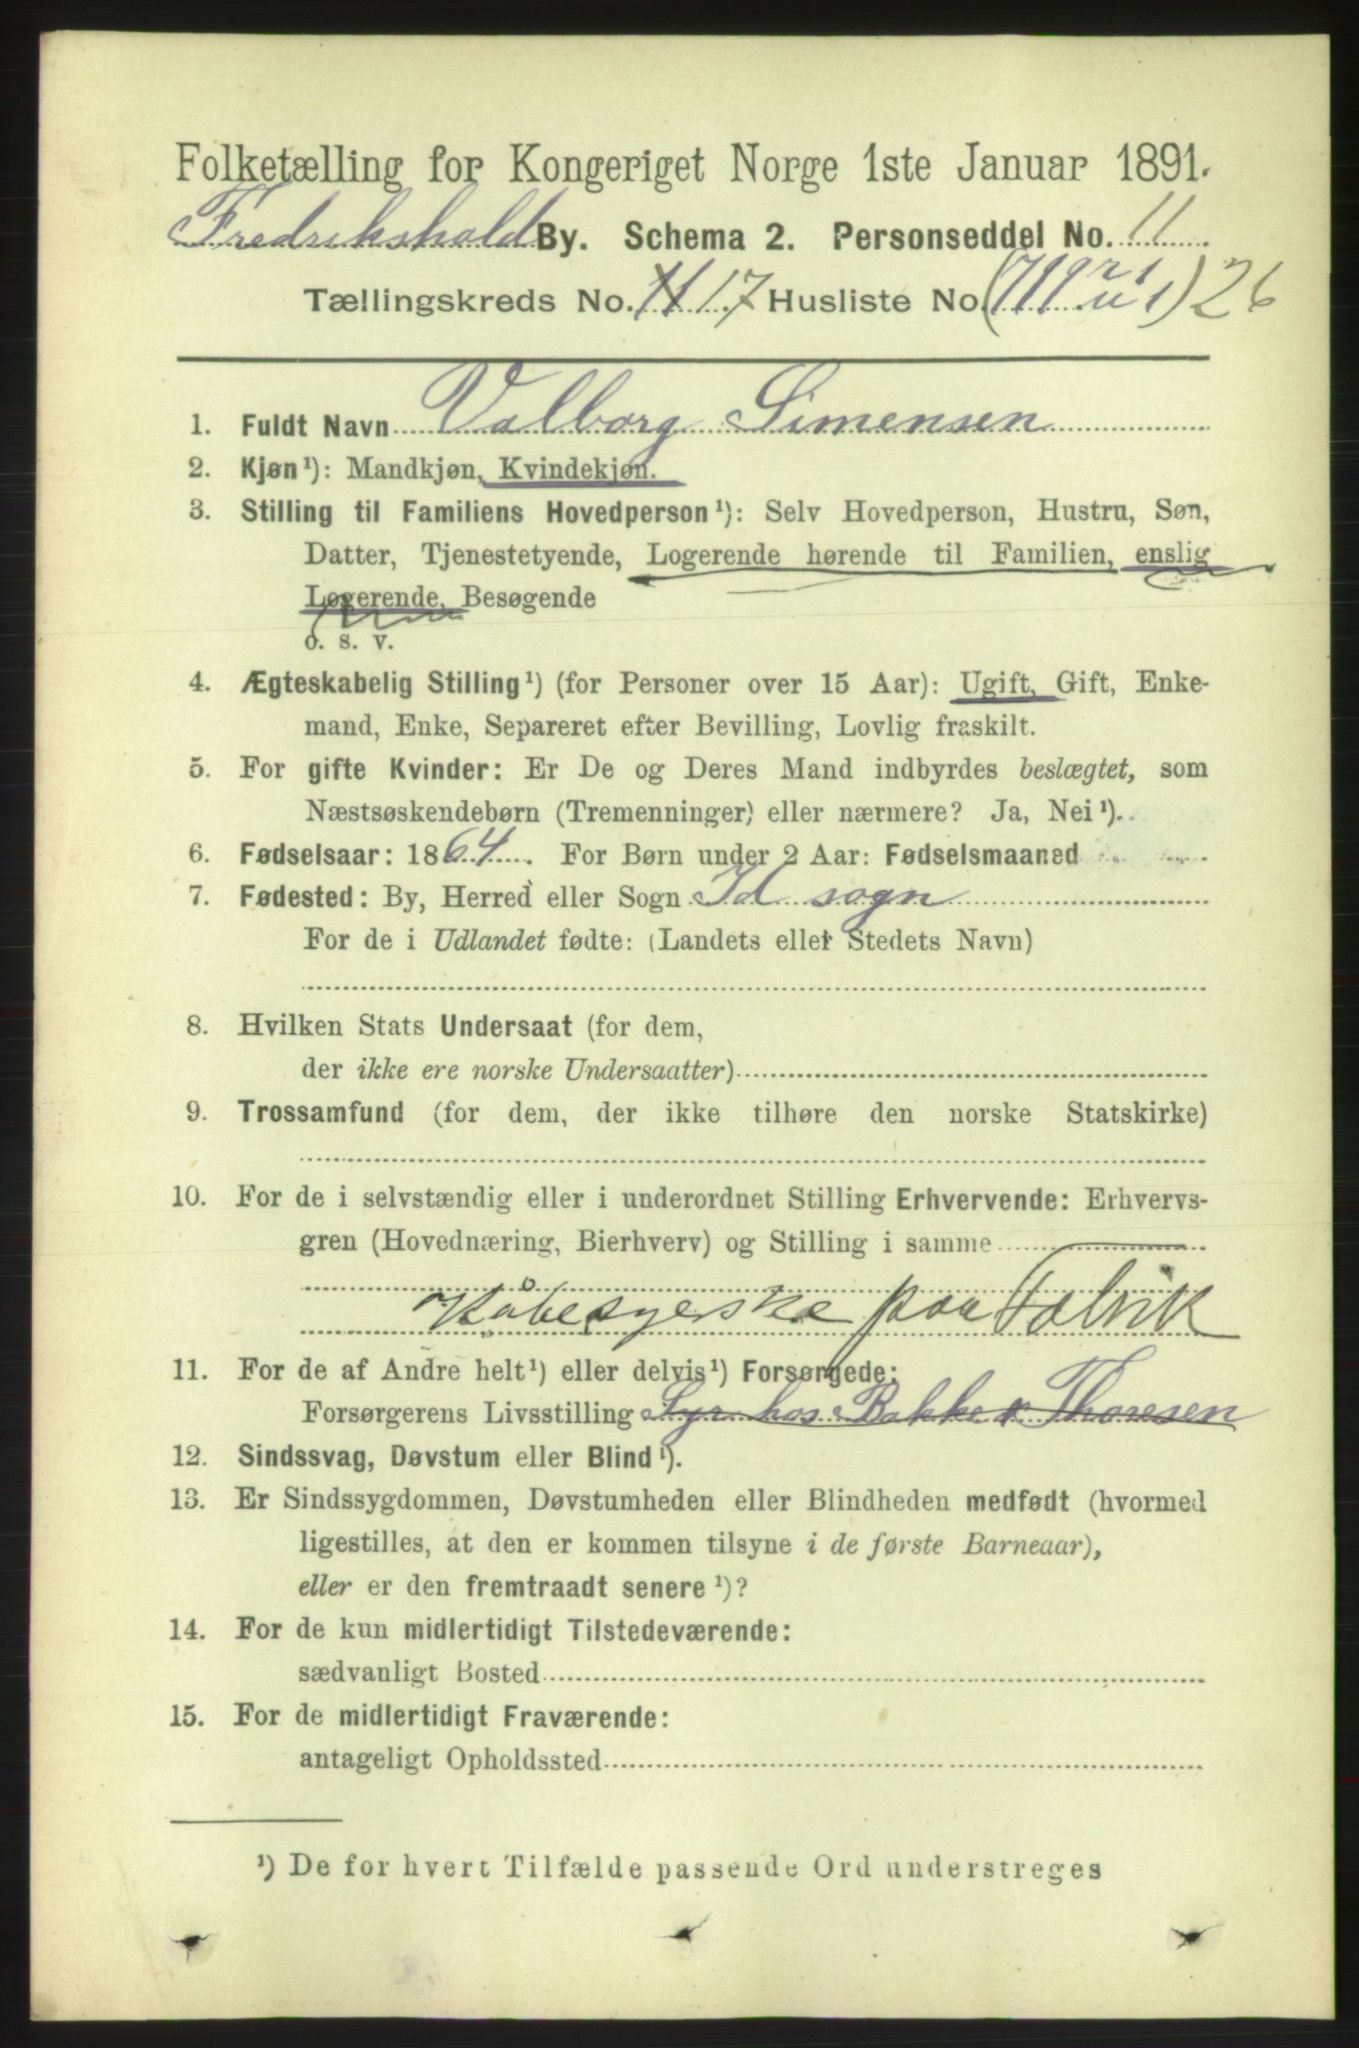 Folketælling for Kongeriget Norge 1ste Januar 1891.
Fredrikshald By. Schema 2. Personseddel No. 11
Tællingskreds No. 11 17 Husliste No. 26
1. Fuldt Navn Valborg Simensen
2. Kjøn¹): Mandkjøn, Kvindekjøn.
3. Stilling til Familiens Hovedperson¹): Selv Hovedperson, Hustru, Søn,
Datter, Tjenestetyende, Logerende hørende til Familien, enslig
Logerende, Besøgende
o. s. v.
4. Ægteskabelig Stilling¹) (for Personer over 15 Aar): Ugift, Gift, Enke-
mand, Enke, Separeret efter Bevilling, Lovlig fraskilt.
5. For gifte Kvinder: Er De og Deres Mand indbyrdes beslægtet, som
Næstsøskendebørn (Tremenninger) eller nærmere? Ja, Nei¹).
6. Fødselsaar: 1864. For Børn under 2 Aar: Fødselsmaaned
7. Fødested: By, Herred eller Sogn Id sogn
For de i Udlandet fødte: (Landets eller Stedets Navn)
8. Hvilken Stats Undersaat (for dem,
der ikke ere norske Undersaatter)
9. Trossamfund (for dem, der ikke tilhøre den norske Statskirke)
10. For de i selvstændig eller i underordnet Stilling Erhvervende: Erhvervs-
gren (Hovednæring, Bierhverv) og Stilling i samme
Kåbesyerske paa
11. For de af Andre helt¹) eller delvis¹) Forsørgede:
Forsørgerens Livsstilling Syr hos Bakke & Thoresen
12. Sindssvag, Døvstum eller Blind¹).
13. Er Sindssygdommen, Døvstumheden eller Blindheden medfødt (hvormed
ligestilles, at den er kommen tilsyne i de første Barneaar),
eller er den fremtraadt senere¹)?
14. For de kun midlertidigt Tilstedeværende:
sædvanligt Bosted
15. For de midlertidigt Fraværende:
antageligt Opholdssted
¹) De for hvert Tilfælde passende Ord understreges